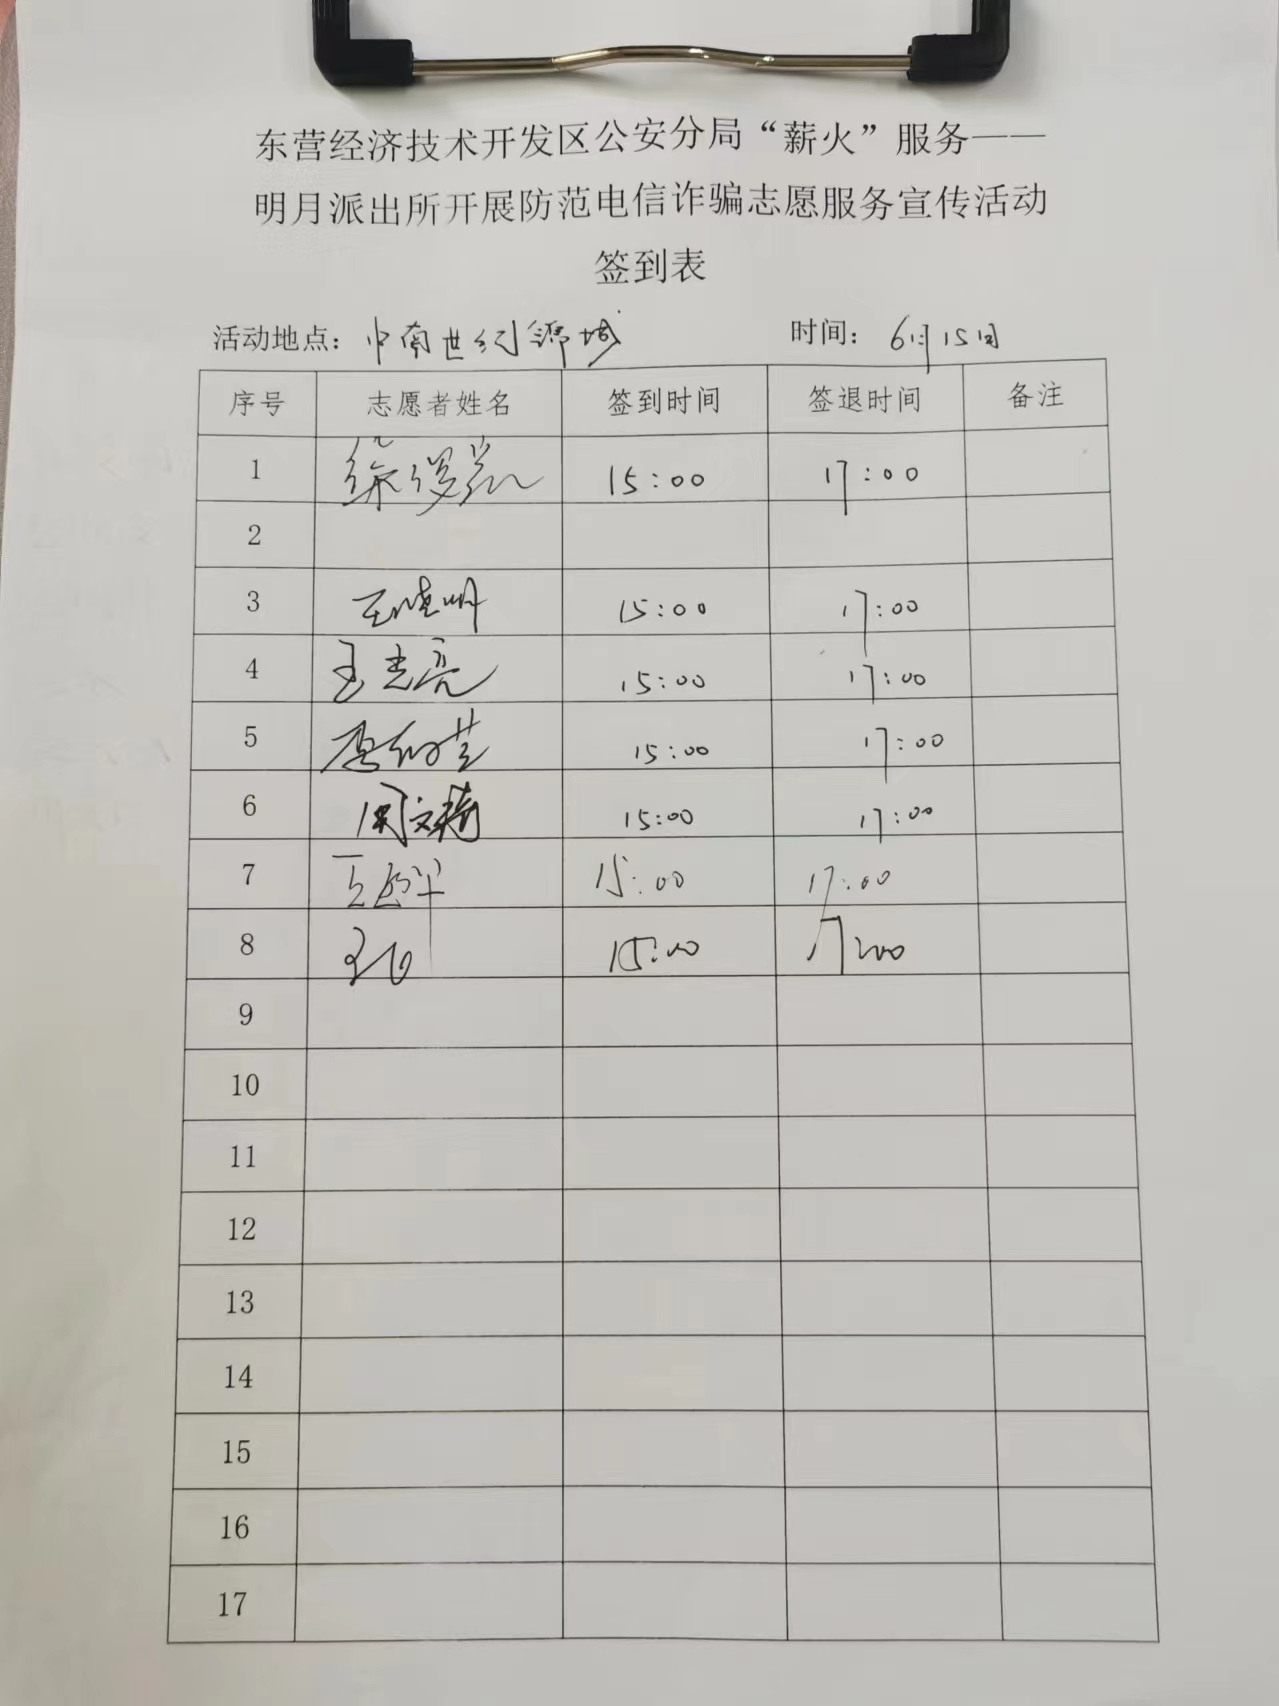 东营经济技术开发区公安分局“薪火”服务——
明月派出所开展防范电信诈骗志愿服务宣传活动
签到表
活动地点：中南世纪锦城 时间：6月15日
序号 志愿者姓名 签到时间 签退时间 备注
1 徐俊凯 15:00 17:00
2
3 王晓明 15:00 17:00
4 王志亮 15:00 17:00
5 15:00 17:00
6 周文 15:00 17:00
7 王 15:00 17:00
8 王 15:00 17:00
9
10
11
12
13
14
15
16
17